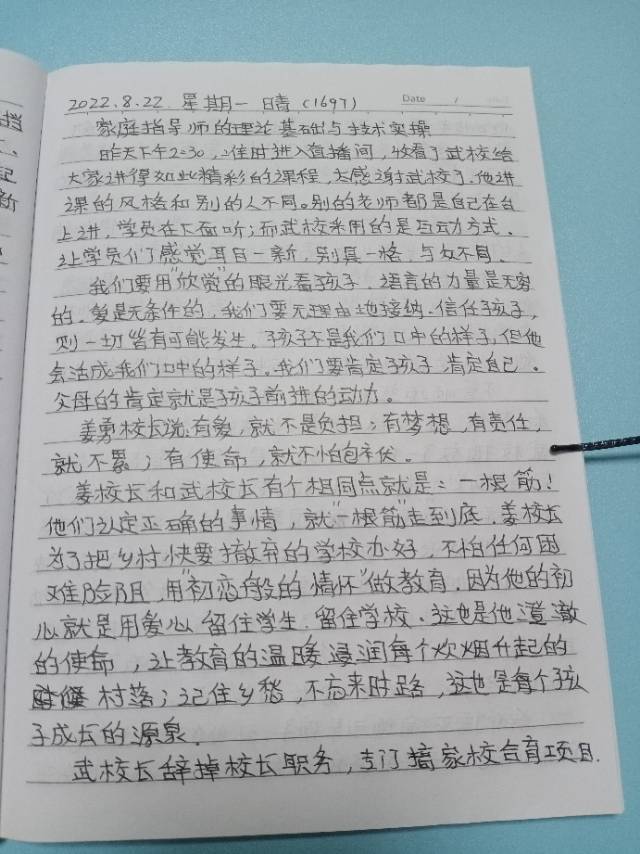 2022.8.22 星期一 晴 (1697)
Date /
家庭指导师的理论基础与技术实操
昨天下午2:30,准时进入直播间,收看了武校给
大家讲得如此精彩的课程,太感谢武校了.他讲
课的风格和别的人不同。别的老师都是自己在台
上讲,学员在下面听;而武校采用的是互动方式.
让学员们感觉耳目一新,别具一格,与众不同.
我们要用"欣赏"的眼光看孩子.语言的力量是无穷
的.爱是无条件的,我们要无理由地接纳.信任孩子,
则一切皆有可能发生。孩子不是我们口中的样子,但他
会活成我们口中的样子.我们要肯定孩子 肯定自己。
父母的肯定就是孩子前进的动力。
姜勇校长说:有爱,就不是负担;有梦想,有责任,
就不累;有使命,就不怕包袱。
姜校长和武校长有个相同点就是:一根筋!
他们认定正确的事情,就"一根筋"走到底.姜校长
为了把乡村快要撤弃的学校办好,不怕任何困
难险阻,用"初恋般的情怀"做教育.因为他的初
心就是用爱心留住学生.留住学校.这也是他澄澈
的使命,让教育的温暖浸润每个炊烟升起的
村落;记住乡愁,不忘来时路,这也是每个孩
子成长的源泉.
武校长辞掉校长职务,专门搞家校合育项目.